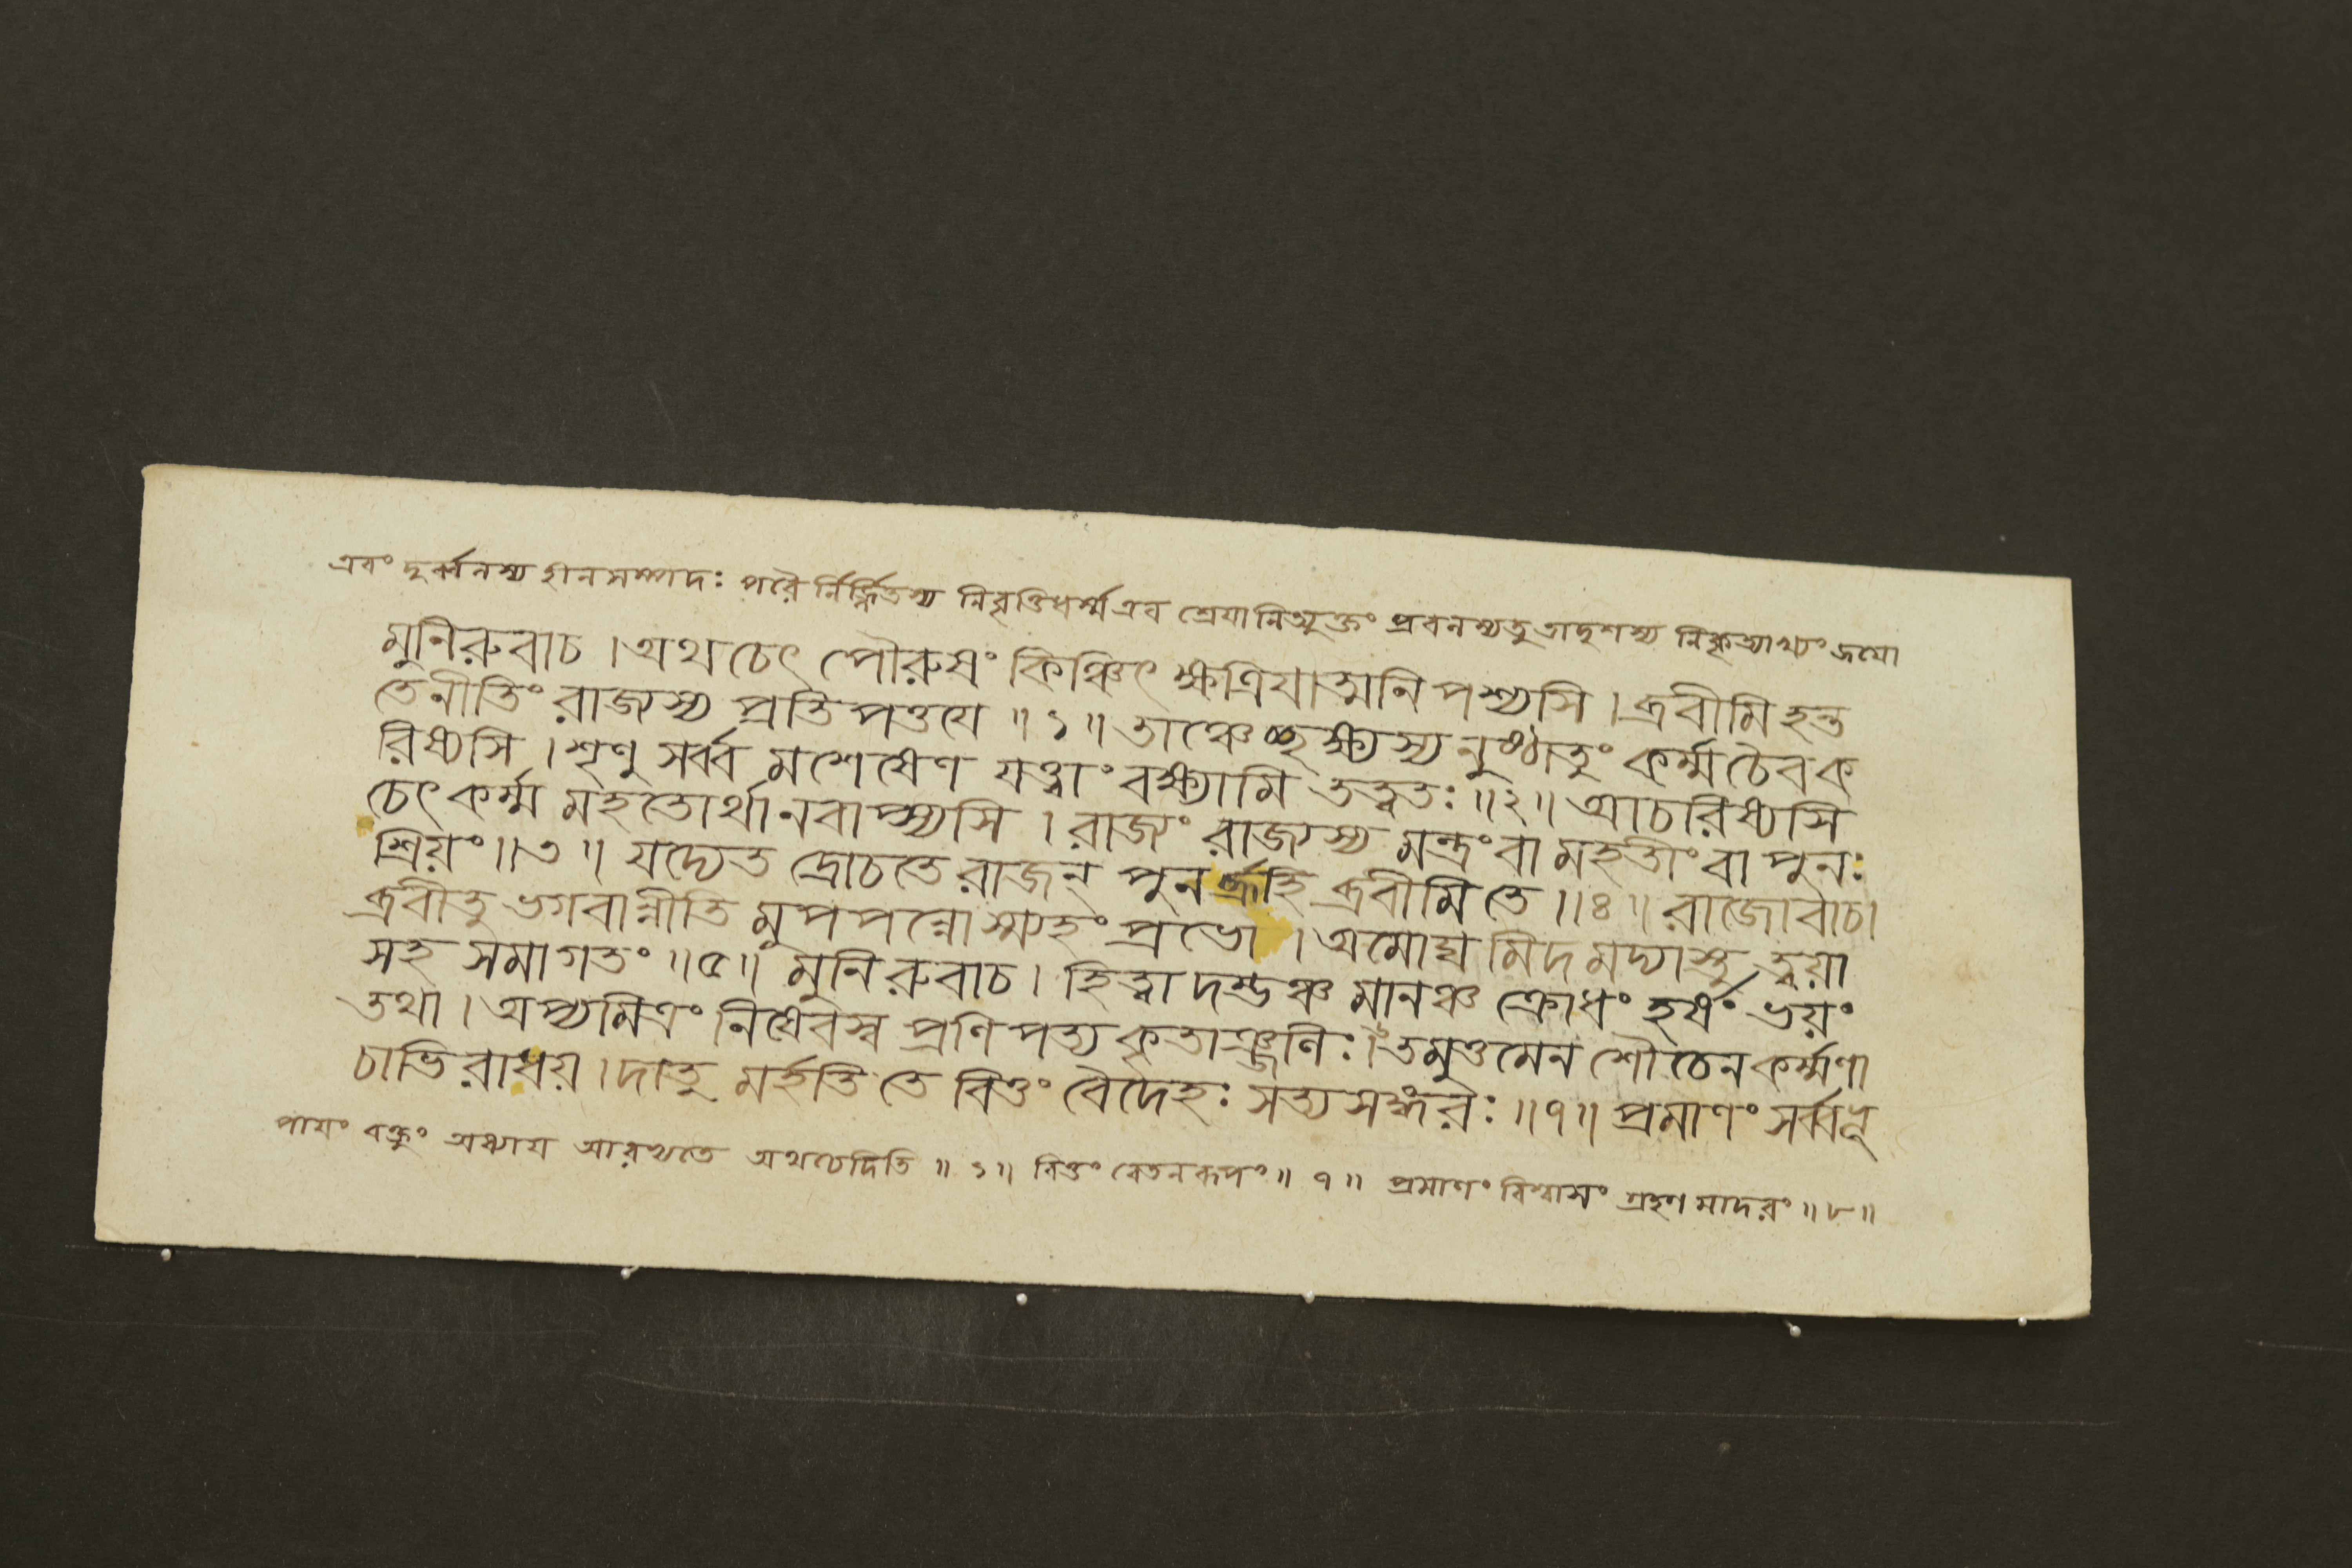 এবং দুর্ব্বলস্য হীনসম্পদঃ পরৈর্নির্জ্জিতস্য নিবৃত্তিধর্ম্ম এব শ্রেয়ানিত্যুক্তং প্রবলস্যতু তাদৃশস্য
মুনিরুবাচ । অথ চেৎ পৌরুষং কিঞ্চিৎ ক্ষত্রিয়াত্মনি পশ্যসি । ব্রবীমি হন্ত
তে নীতিং রাজ্যস্য প্রতিপত্তয়ে ॥ ১ ॥ তাঞ্চেচ্ছক্ষ্যস্যনুষ্ঠাতুং কর্ম্ম চৈব ক
রিষ্যসি । শৃণু সর্ব্ব মশেষেণ যত্ত্বাং বক্ষ্যামি তত্ত্বতঃ ॥ ২ ॥ আচরিষ্যসি
চেৎ কর্ম্ম মহতোর্থানবাপ্স্যসি । রাজ্যং রাজ্যস্য মন্ত্রং বা মহতীং বা পুনঃ
শ্রিয়ং ॥ ৩ ॥ যদ্যেত দ্রোচতে রাজন্ পুনর্ব্রূহি ব্রবীমি তে ॥ ৪ ॥ রাজোবাচ।
ব্রবীতু ভগবান্নীতি মুপপন্নোস্ম্যহং প্রভো । অমোঘ মিদ মদ্যাস্তু ত্বয়া
সহ সমাগতং ॥ ৫ ॥ মুনিরুবাচ । হিত্বা দম্ভঞ্চ মানঞ্চ ক্রোধং হর্ষং ভয়ং
তথা । অপ্যমিত্রং নিষেবস্ব প্রণিপত্য কৃতাঞ্জলিঃ । ৬ তমুত্তমেন শৌচেন কর্ম্মণা
চাভিরাধয় । দাতু মর্হতি তে বিত্তং বৈদেহঃ সত্যসঙ্গরঃ ॥ ৭ ॥ প্রমাণং সর্ব্বভূ
পায়ং বক্তুং অধ্যায় আরভ্যতে অথচেদিতি ॥ ১ ॥ বিত্তং বেতনরূপং ॥ ৭ ॥ প্রমাণং বিশ্বাসং গ্রহণ মাদরং ॥ ৮ ॥